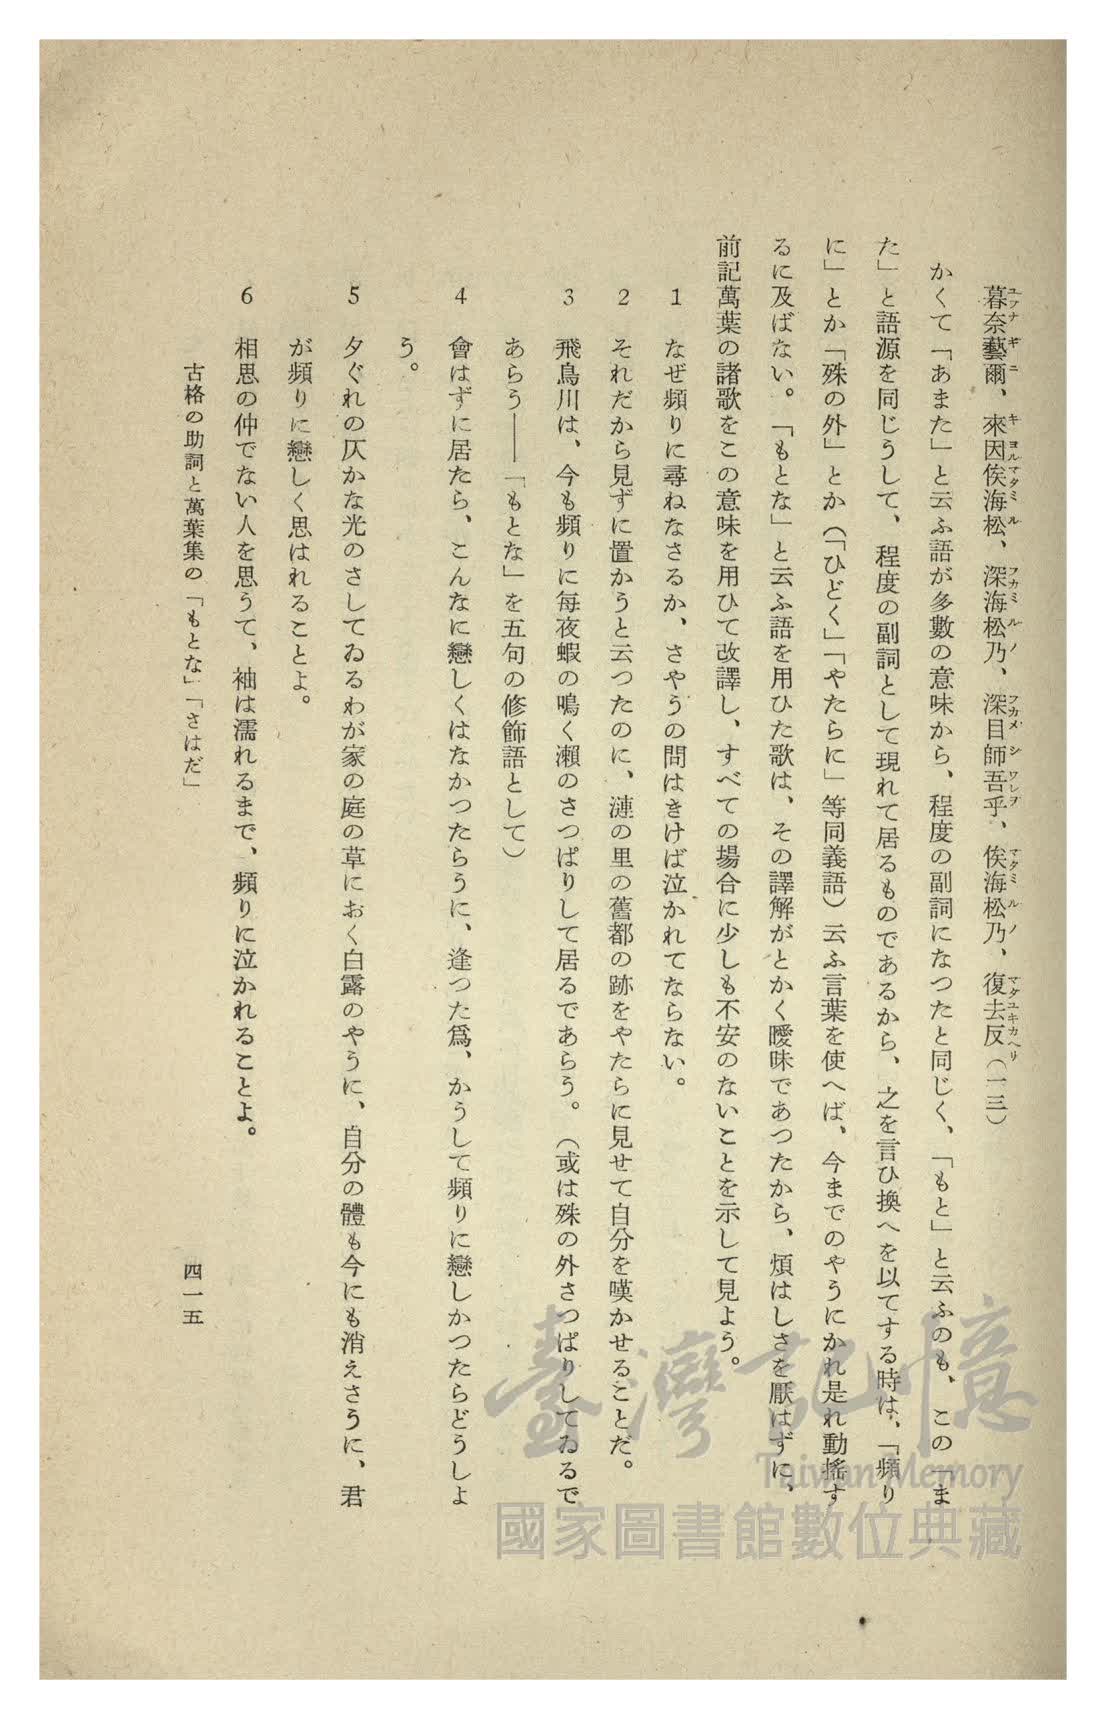 暮奈藝爾、來因俟海松、深海松乃、深目師吾乎、俟海松乃、復去反（一三）
ユフナ ギ ニ キ ヨルマタミ ル フカミ ル ノ フカメ シ ワレヲ マタミ ル ノ マタユキカヘリ
かくて「あまた」と云ふ語が多數の意味から、程度の副詞になつたと同じく、「もと」と云ふのも、この「ま
た」と語源を同じうして、程度の副詞として現れて居るものであるから、之を言ひ換へを以てする時は、「頻り
に」とか「殊の外」とか（「ひどく」「やたらに」等同義語）云ふ言葉を使へば、今までのやうにかれ是れ動搖す
るに及ばない。「もとな」と云ふ語を用ひた歌は、その譯解がとかく曖昧であつたから、煩はしさを厭はずに、
前記萬葉の諸歌をこの意味を用ひて改譯し、すべての場合に少しも不安のないことを示して見よう。
1 なぜ頻りに尋ねなさるか、さやうの問はきけば泣かれてならない。
2 それだから見ずに置かうと云つたのに、漣の里の舊都の跡をやたらに見せて自分を嘆かせることだ。
3 飛鳥川は、今も頻りに每夜蝦の鳴く瀨のさつぱりして居るであらう。（或は殊の外さつぱりしてゐるで
あらう——「もとな」を五句の修飾語として）
4 會はずに居たら、こんなに戀しくはなかつたらうに、逢つた爲、かうして頻りに戀しかつたらどうしよ
う。
5 夕ぐれの仄かな光のさしてゐるわが家の庭の草におく白露のやうに、自分の體も今にも消えさうに、君
が頻りに戀しく思はれることよ。
6 相思の仲でない人を思うて、袖は濡れるまで、頻りに泣かれることよ。
古格の助詞と萬葉集の「もとな」「さはだ」
四一五
臺灣記憶
Taiwan Memory
國家圖書館數位典藏